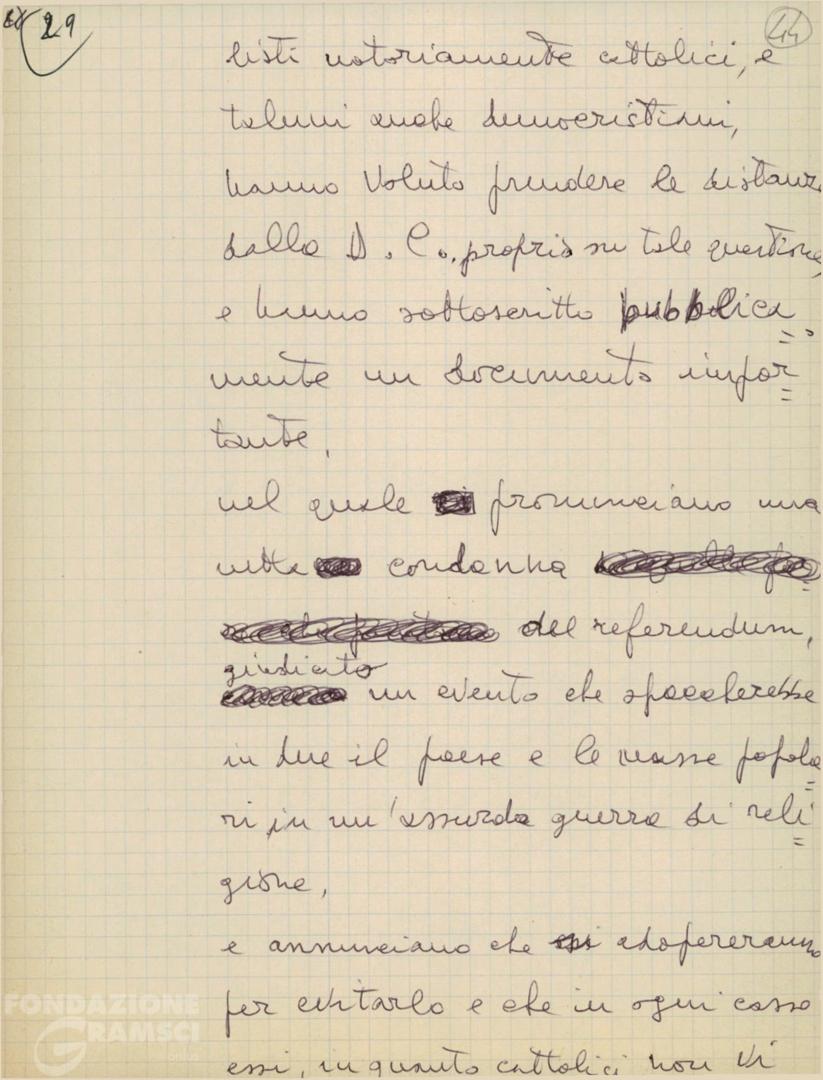 29
44
listi notoriamente cattolici, e
taluni anche democristiani,
hanno voluto prendere le distanz
dalla D.C., proprio su tale questione,
e hanno sottoscritto pubblica
mente un documento impor
tante,
nel quale pronunciano una
netta condanna
del referendum,
giudicato
un evento che spaccherebbe
in due il paese e le masse popola
ri in un'assurda guerra di reli
gione,
e annunciano che si adopereranno
per evitarlo e che in ogni caso
essi, in quanto cattolici non vi
FONDAZIONE
GRAMSCI